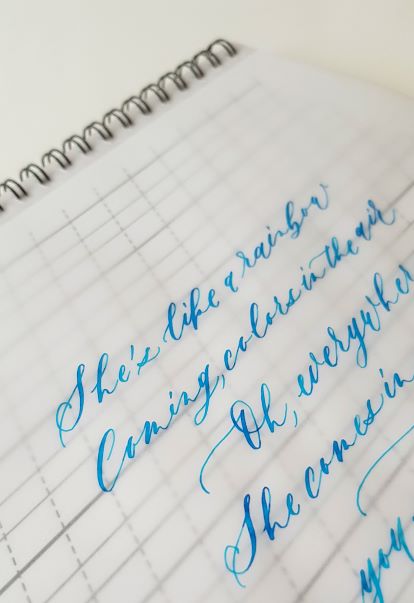 She's like a rainbow
Coming, colors in the air
Oh, everywher
She comes in
you